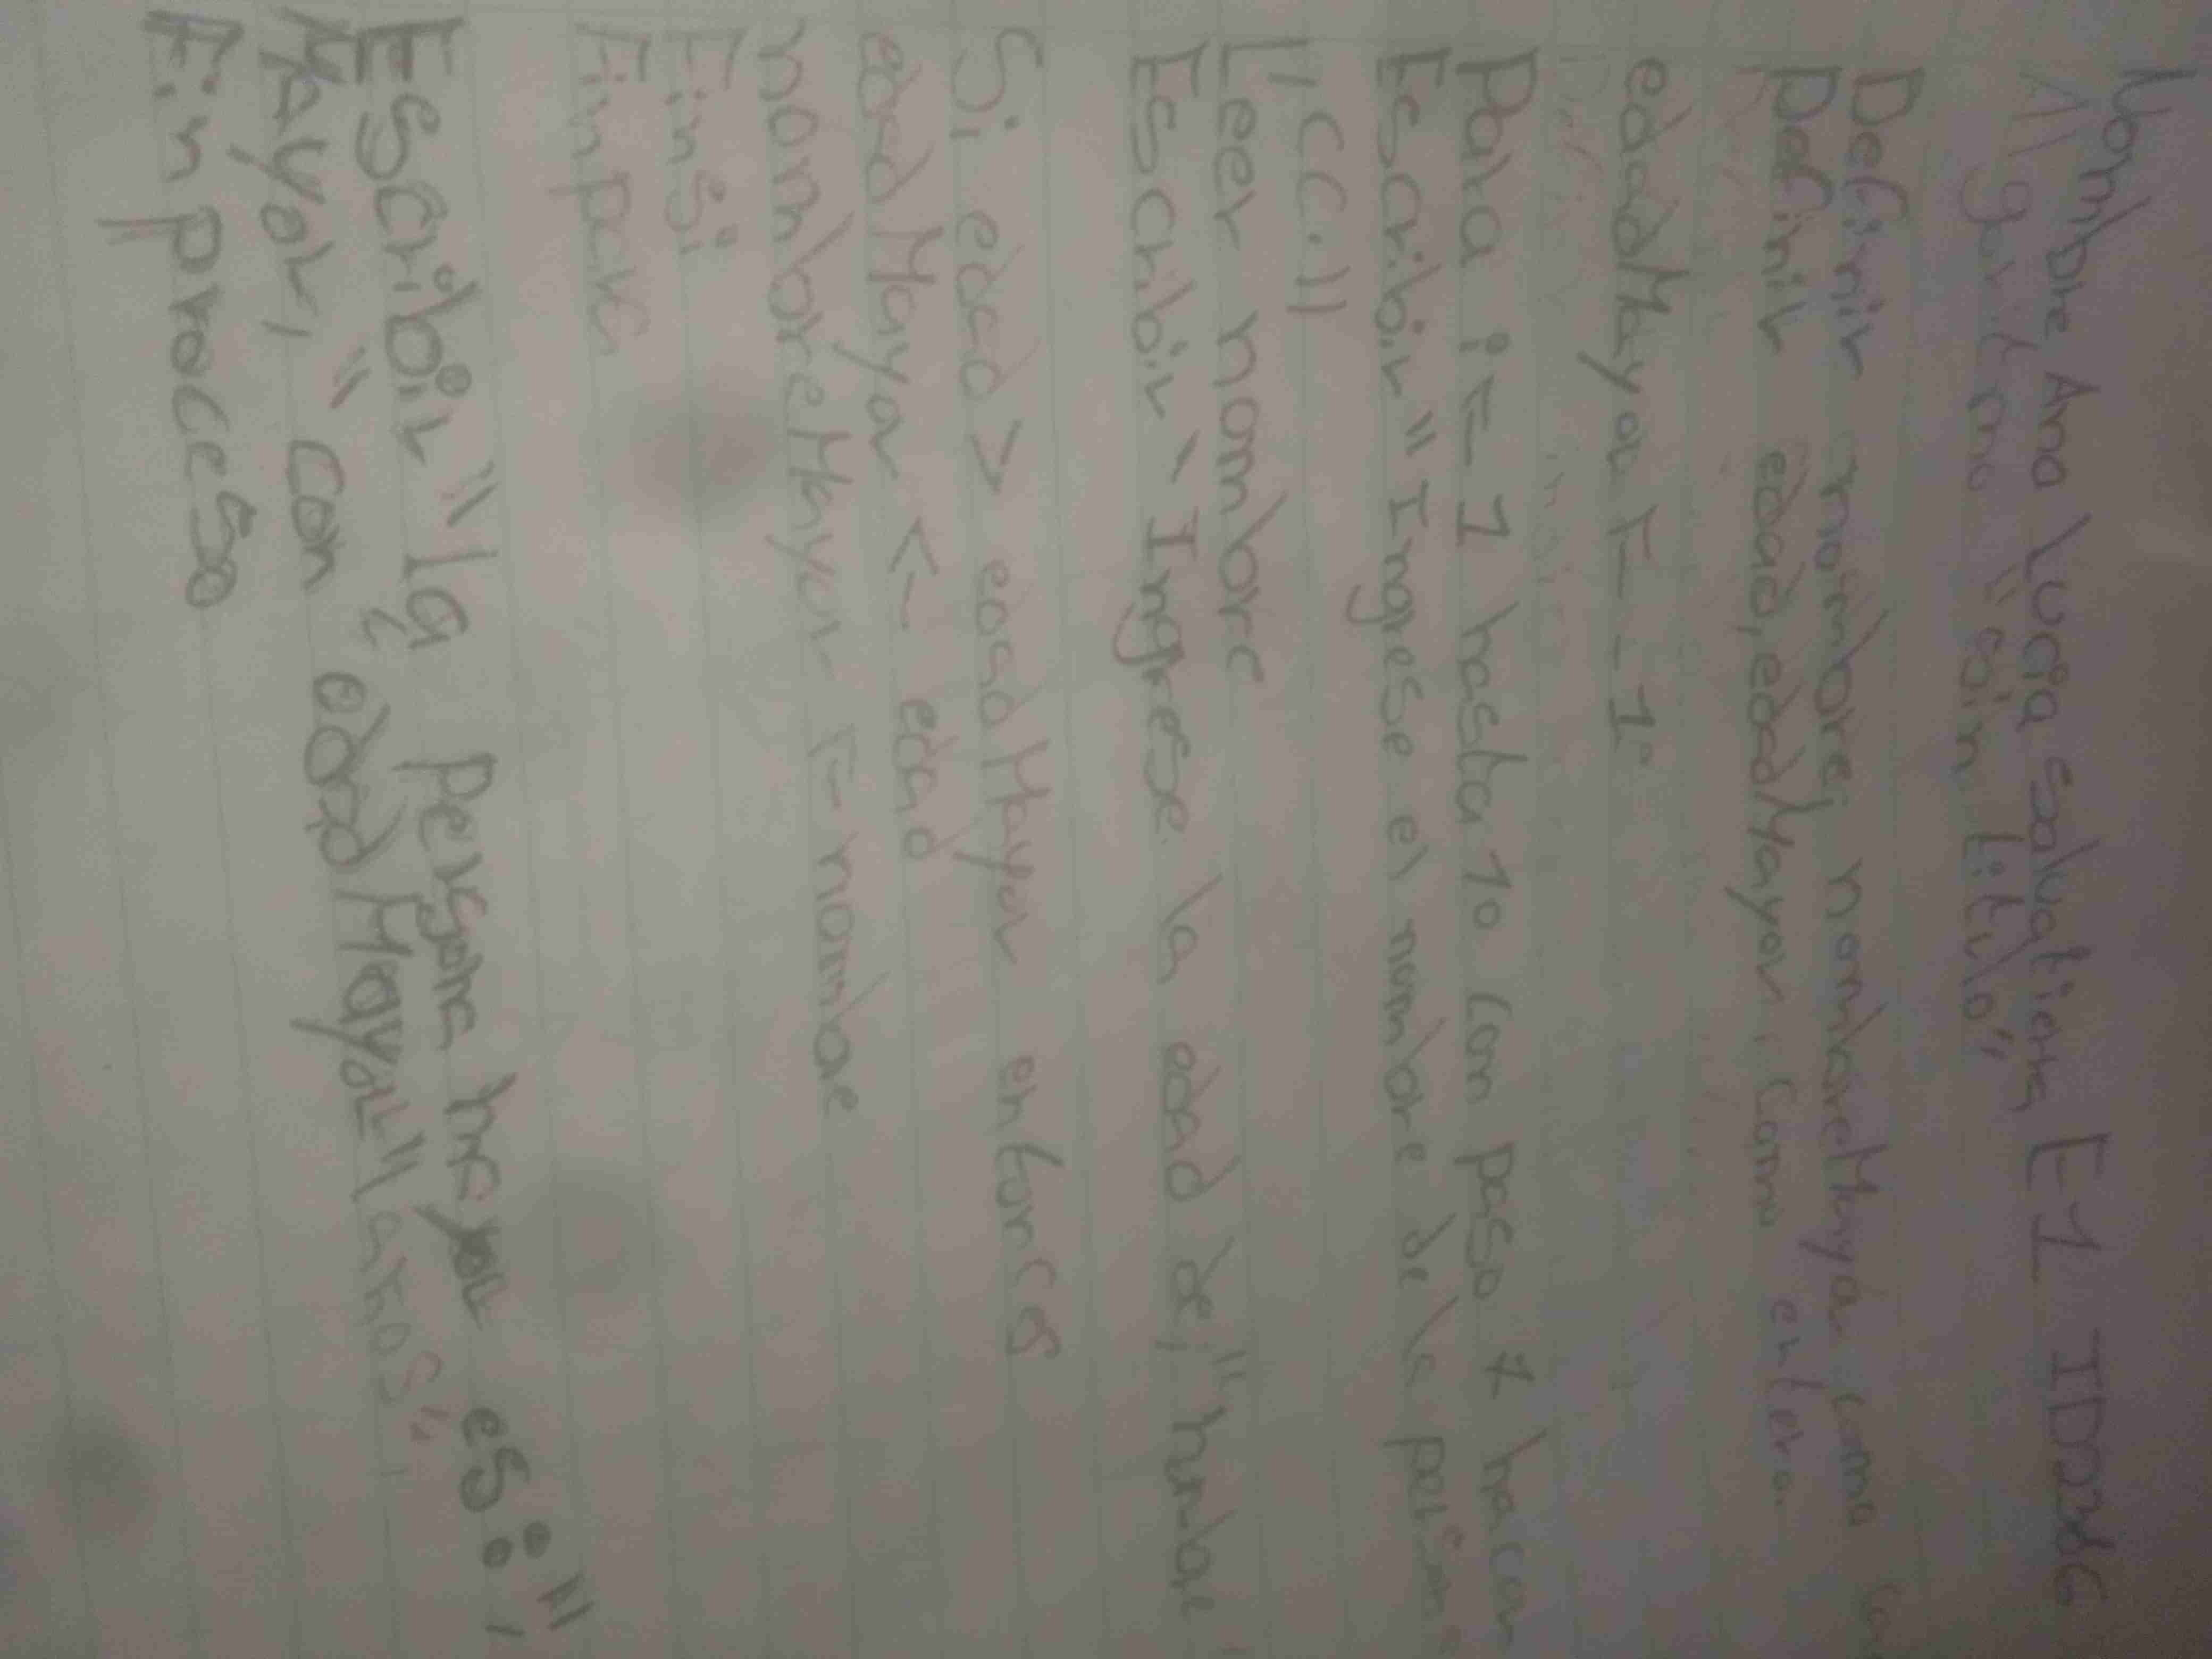 Nombre Ana lucia salvatiens E1 ID
Algoritmo "sin titulo"
Definir nombre, nombreMayor como
Definir edad, edadMayor, Como entero.
edadMayor F - - 1
Para i = 1 hasta 10 Con paso 1 hacer
Escribir "Ingrese el nombre de la person
Leer nombre
Escribir "Ingrese la edad de," nombre
Si edad > edadMayor entonces
edadMayor <- edad
nombreMayor F- nombre
Finsi
Finpara
Escribir "la persona mayor es:",
MAyor, " Con, edadMayor" años",
Fin proceso